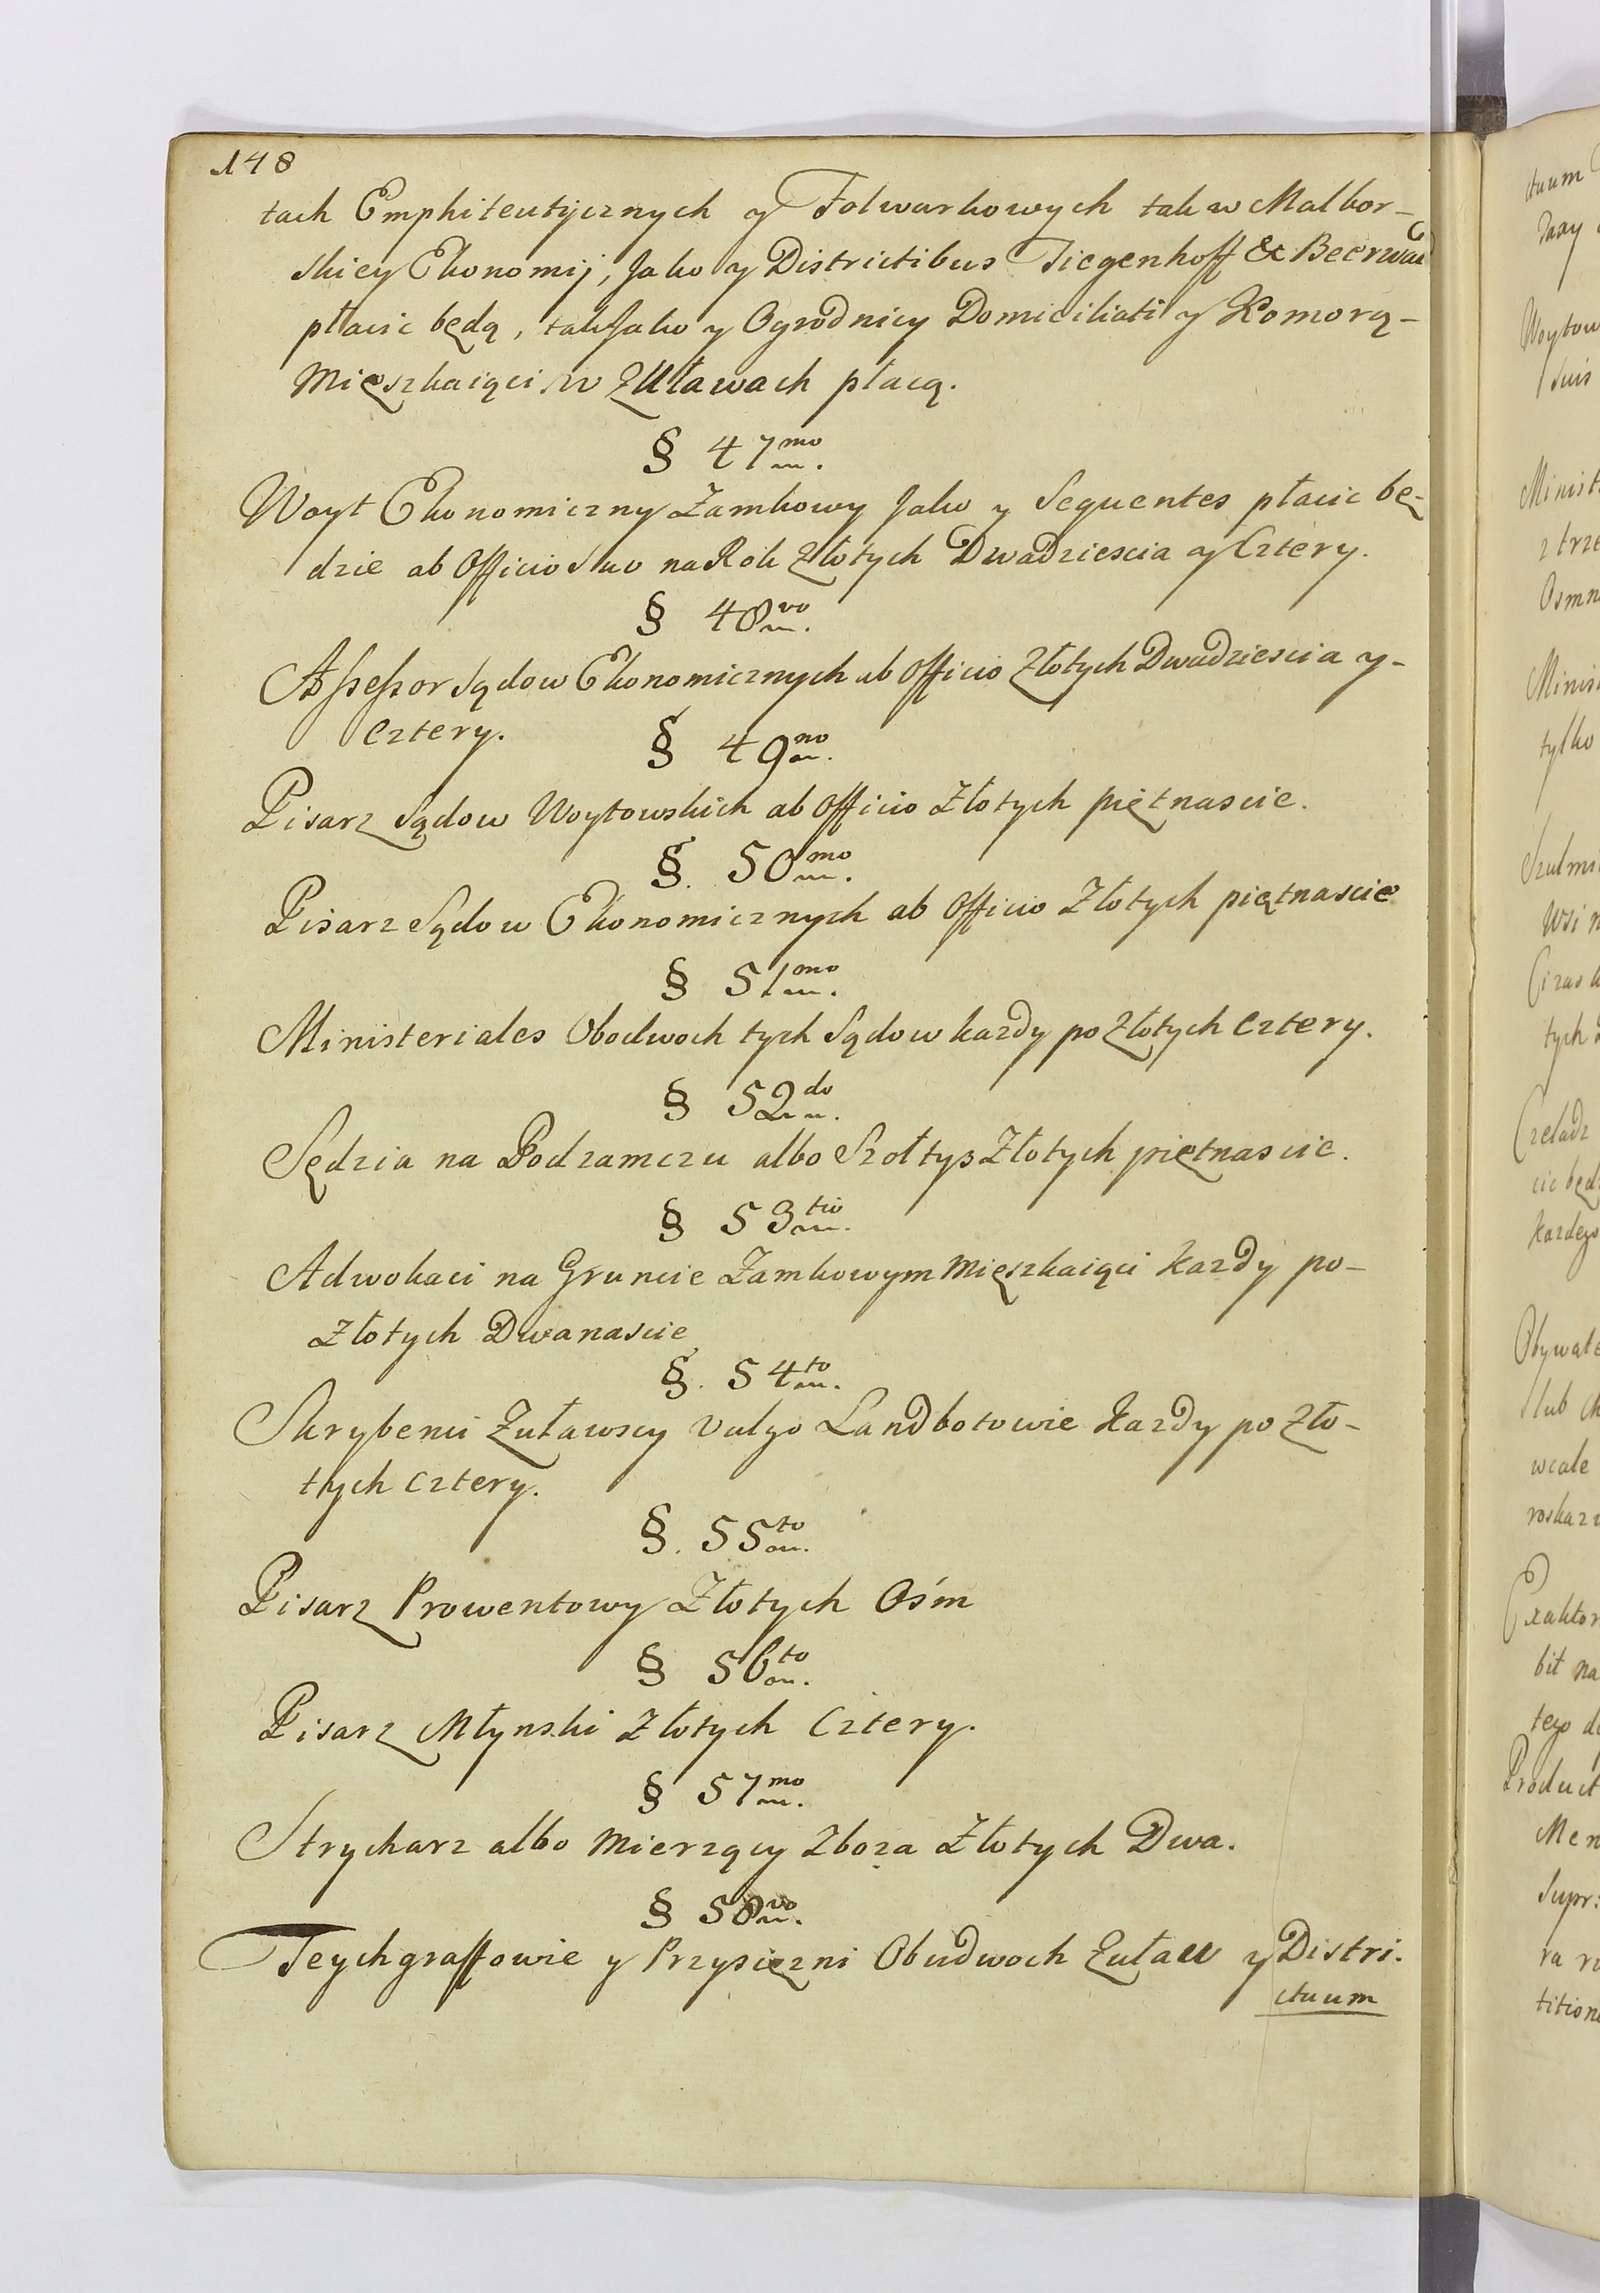 148
tach Emphiteutycznych y Folwarkowych tak w Malbor-
skiey Ekonomij, Jako y Districtibus Tiegenhoff & Beerwal
płacic będą, tak Jako y Ogrodnicy Domiciliati y Komorą-
Mięszkaiący w Zuławach płacą.
§ 47mo.
Woyt Ekonomiczny Zamkowy Jako y Sequentes płacic bę-
dzie ab Officio Suo na Rok Złotych Dwadziescia y Cztery.
§ 48vo.
Assessor Sądow Ekonomicznych ab Officio Złotych Dwadziescia y-
Cztery.
§ 49no.
Pisarz Sądow Woytowskich ab Officio Złotych piętnascie.
§. 50mo.
Pisarz Sądow Ekonomicznych ab Officio Złotych piętnascie
§ 51mo.
Ministeriales Obodwoch tych Sądow kazdy po Złotych Cztery.
§ 52do.
Sędzia na Podzamczu albo Szołtys Złotych piętnascie.
§ 53tio.
Adwokaci na Gruncie Zamkowym Mięszkaiący Kazdy po-
Złotych Dwanascie
§. 54to.
Skrybenci Zuławscy vulgo Landbotowie Kazdy po Zło-
tych Cztery.
§. 55to.
Pisarz Prowentowy Złotych Ośm
§ 56to.
Pisarz Młynski Złotych Cztery.
§ 57mo.
Strycharz albo Mierzący Zboza Złotych Dwa.
§ 58vo.
Teychgraffowie y Przysięzni Obudwoch Zuław y Distri.
ctuum
ctuum
Woytow
Minist
Osmn
Minis
tylko
Wsi n
tych
Czeladz
cie będ
kazdego
Obywate
wcale
roskaz
Exaktor
bit na
tego d
Product
Men
Supr:
tition